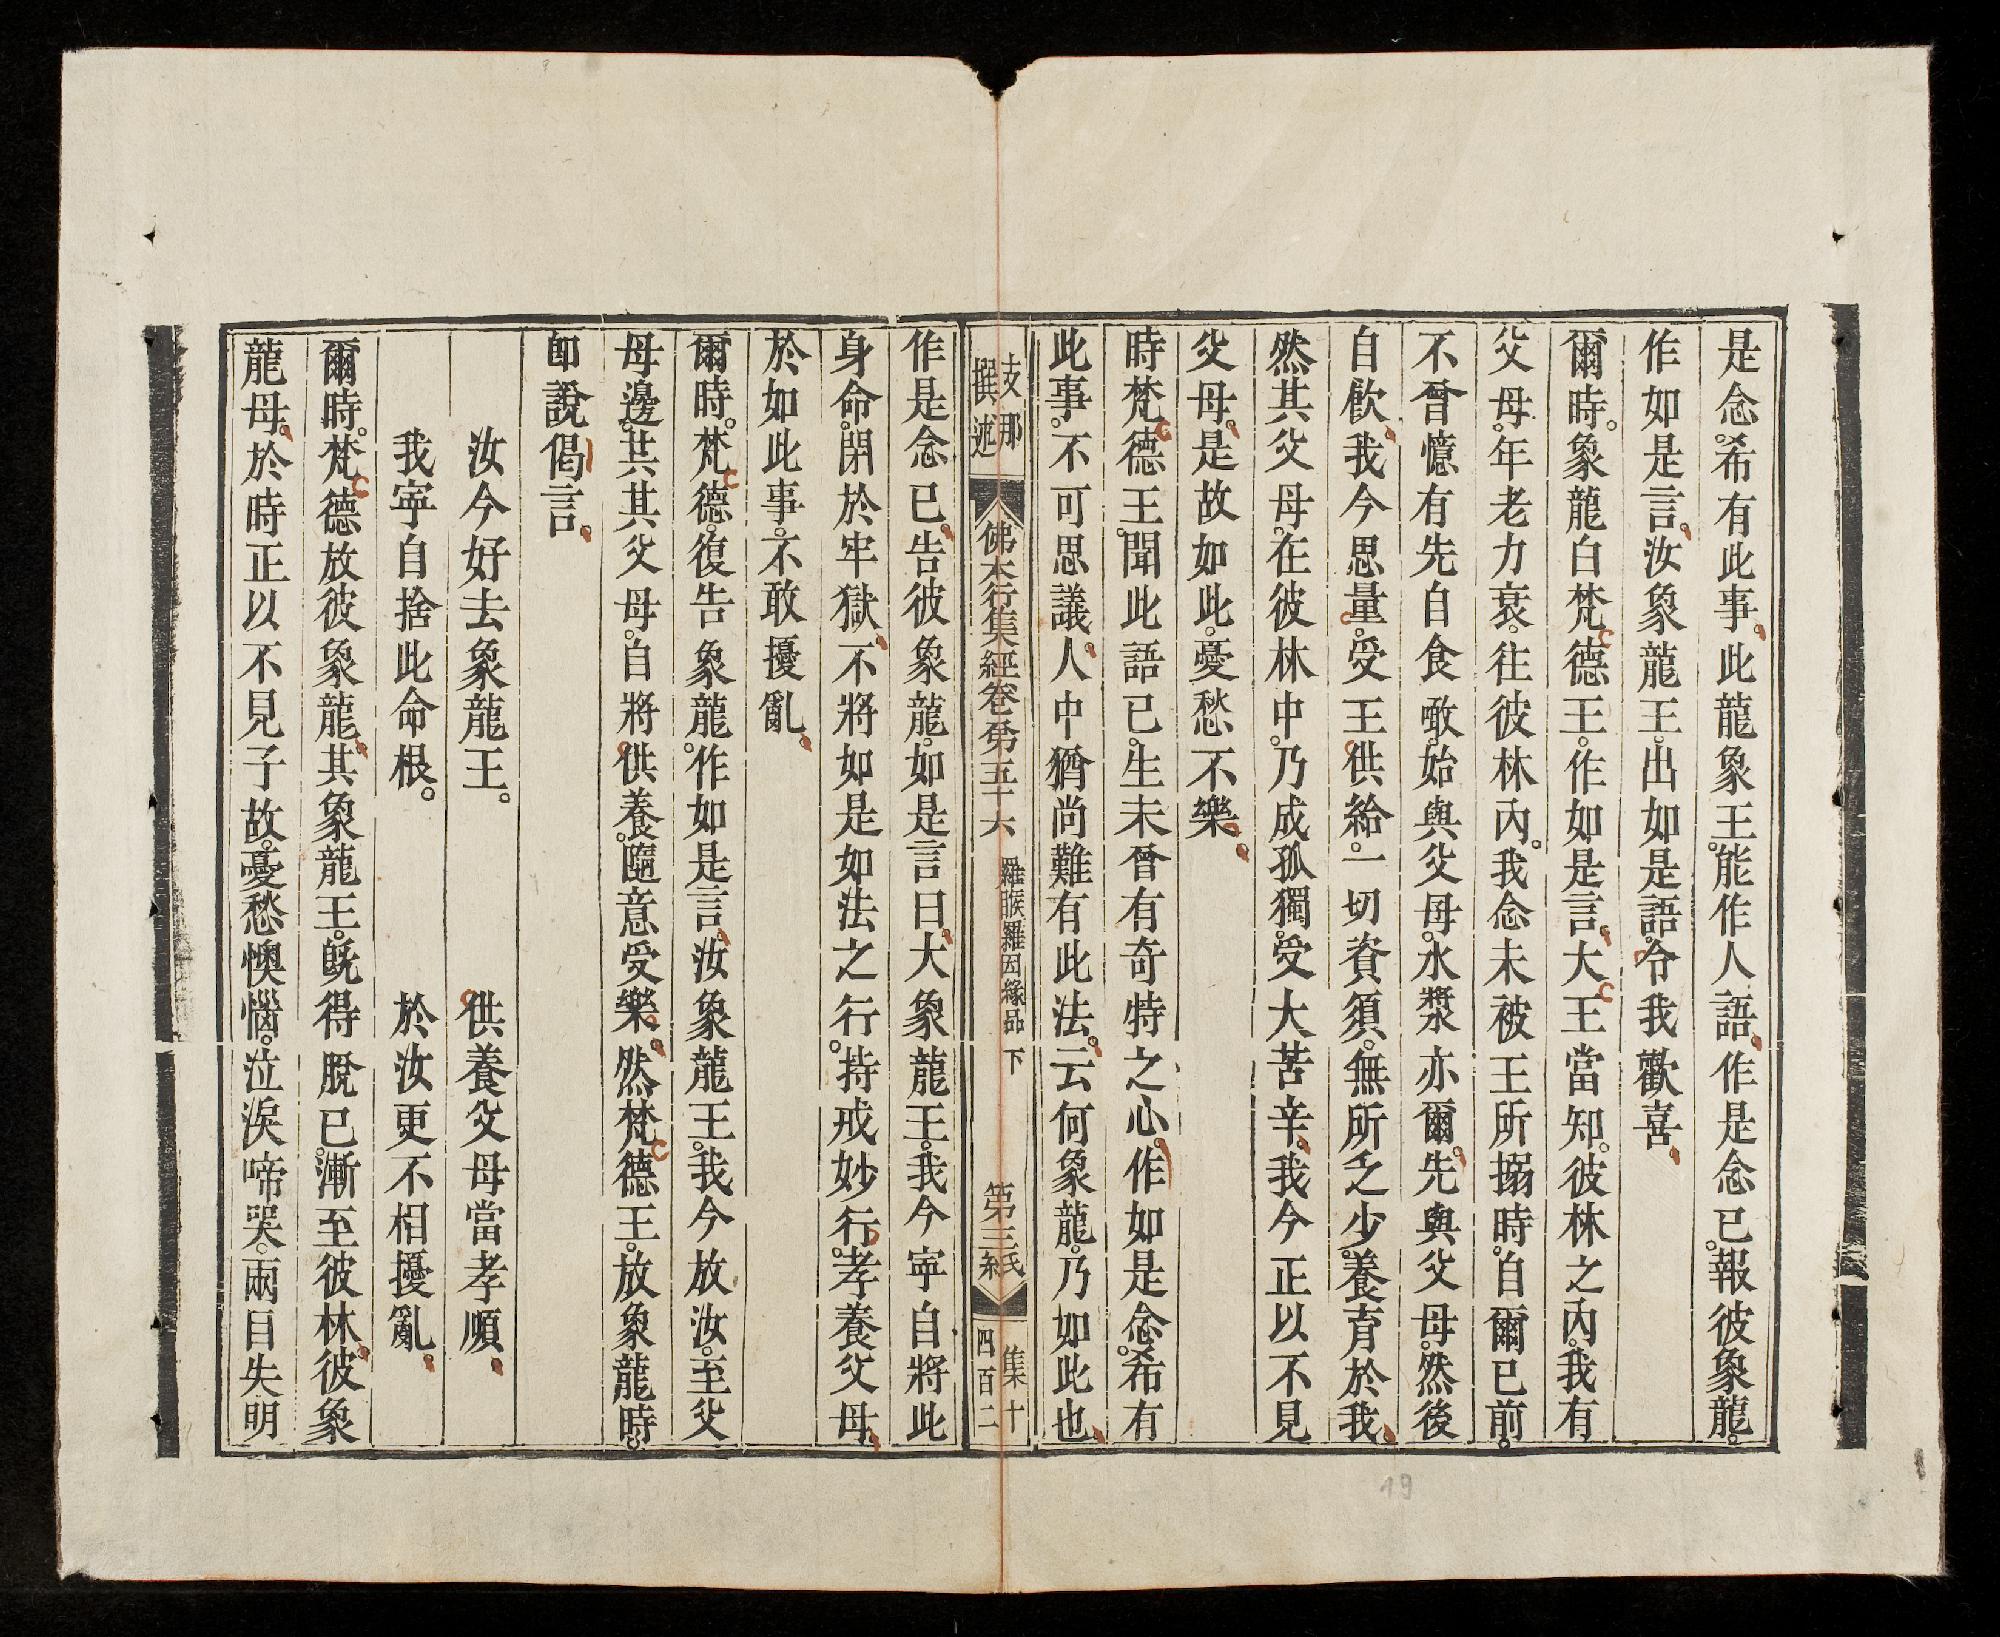 是念。希有此事。此龍象王。能作人語。作是念已。報彼象龍。
作如是言。汝象龍王。出如是語。令我歡喜。
爾時。象龍白梵德王。作如是言。大王當知。彼林之內。我有
父母。年老力衰。往彼林內。我念未被王所搦時。自爾已前。
不曾憶有先自食噉。始與父母。水漿亦爾。先與父母。然後
自飲。我今思量。受王供給。一切資須。無所乏少。養育於我。
然其父母。在彼林中。乃成孤獨。受大苦辛。我今正以不見
父母。是故如此。憂愁不樂。
時梵德王。聞此語已。生未曾有奇特之心。作如是念。希有
此事。不可思議。人中猶尚難有此法。云何象龍。乃如此也。
支那
撰述
佛本行集經卷第五十六
羅睺羅因緣品下
第三紙
集十
四百二
作是念已。告彼象龍。如是言曰。大象龍王。我今寧自將此
身命。閉於牢獄。不將如是如法之行。持戒妙行。孝養父母。
於如此事。不敢擾亂。
爾時。梵德。復告象龍。作如是言。汝象龍王。我今放汝。至父
母邊。共其父母。自將供養。隨意受樂。然梵德王。放象龍時。
即說偈言。
汝今好去象龍王。　供養父母當孝順。
我寧自捨此命根。　於汝更不相擾亂。
爾時。梵德放彼象龍。其象龍王。既得脫已。漸至彼林。彼象
龍母。於時正以不見子故。憂愁懊惱。泣淚啼哭。兩目失明
19